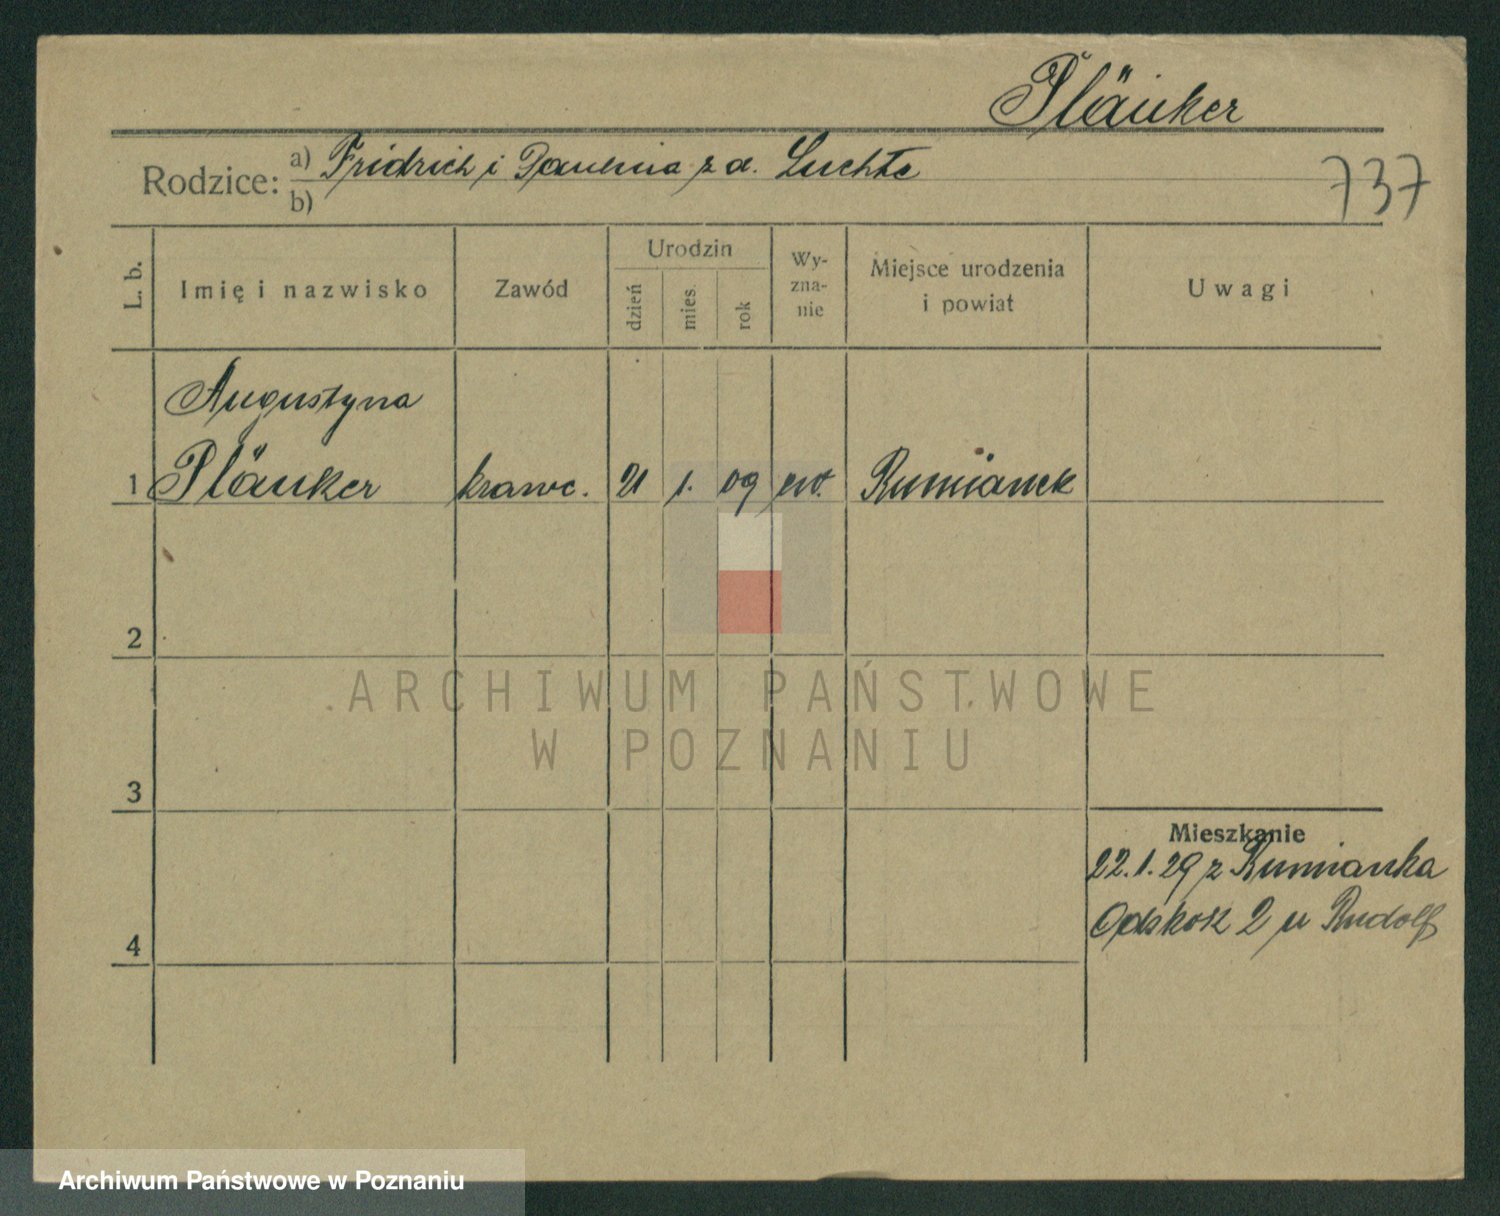 Pläuker
Rodzice: a) Fridrich i z d. Luchte
737
b)
L. b.
Imię i nazwisko
Zawód
Urodzin
dzień
mies.
rok
Wy-
zna-
nie
Miejsce urodzenia
i powiat
Uwagi
Augustyna
1 Pläuker krawc. 21 1. 09 ew. Rumianek
2
ARCHIWUM PAŃSTWOWE
W POZNANIU
3
Mieszkanie
22.1.29 z Rumianka
2 u Rudolf
4
Archiwum Państwowe w Poznaniu